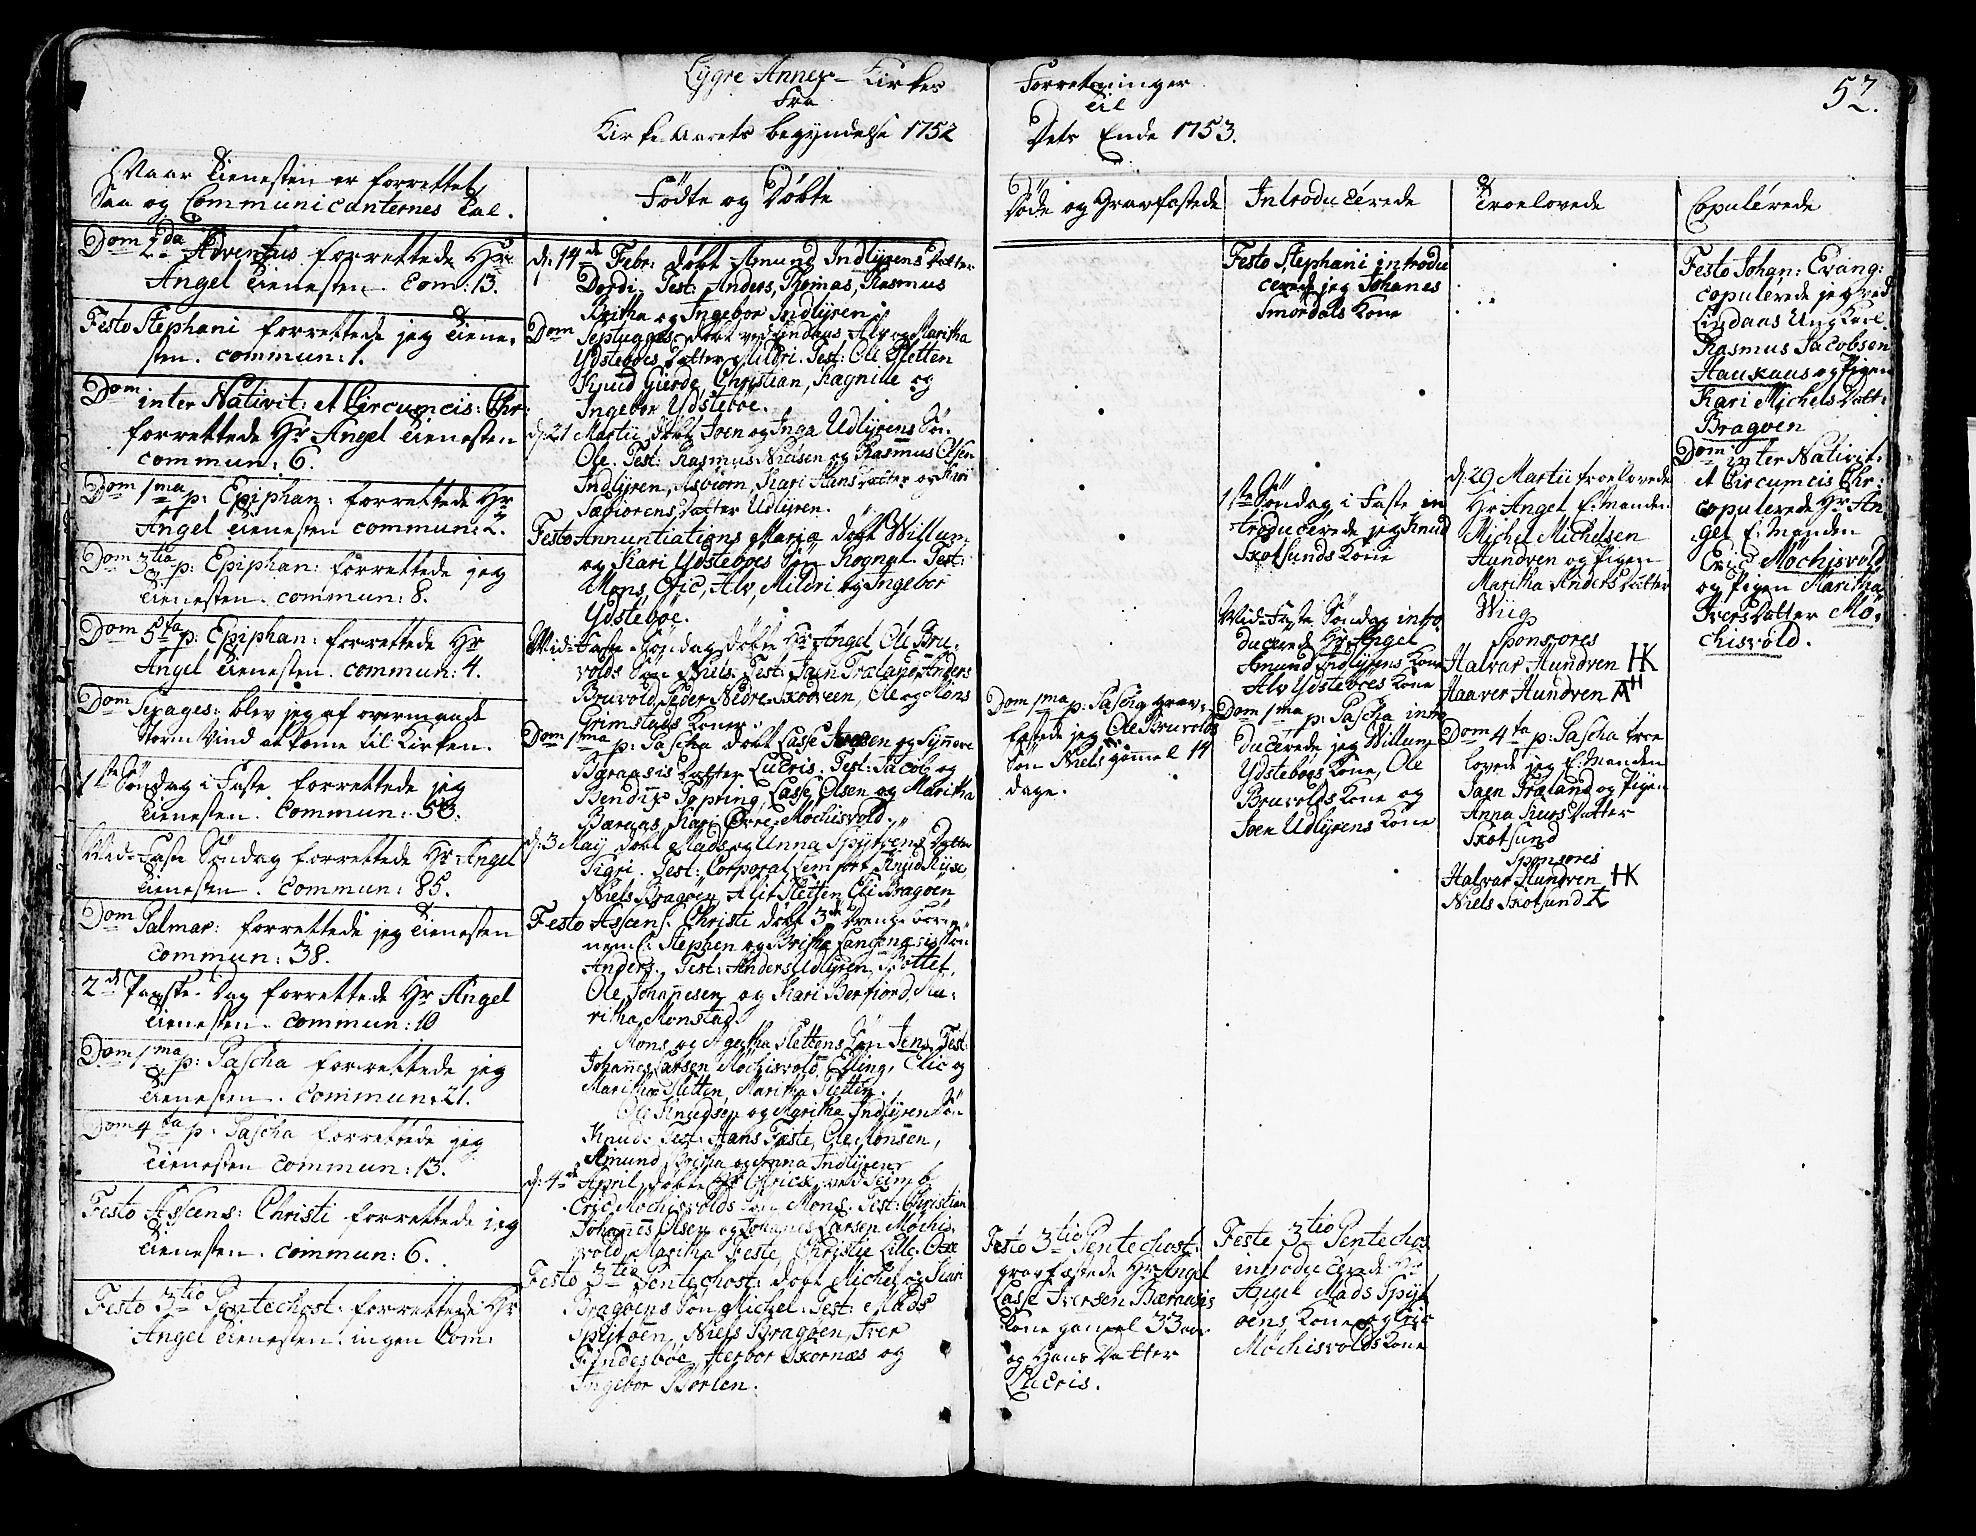 Lygre Annex- Kirkes
Fra
Kirke Aarets begyndelse 1752
Forretninger
til
Dets Ende 1753.
57.
Naar Tienesten er forrettet,
Saa og Communicanternes Tal.
Dom 2da Adventus forrettede Hr
Angel Tienesten. Com: 13.
Festo Stephani forrettede jeg Tiene-
sten. commun: 1.
Dom inter Nativit: et Circumcis: Chr:
forrettede Hr Angel Tienesten
commun: 6.
Dom 1ma p: Epiphan: forrettede Hr
Angel Tienesten commun: 2.
Dom 3tia p: Epiphan: forrettede jeg
Tienesten. commun: 8.
Dom 5ta p: Epiphan: forrettede Hr
Angel Tienesten. commun: 4.
Dom Sexages: blev jeg af overmaade
Storm Vind at kome til Kirken.
1ste Søndag i Faste forrettede jeg
Tienesten. commun: 50.
Mid-Faste Søndag forrettede Hr Angel
Tienesten. commun: 85.
Dom Palmar: forrettede jeg Tienesten
commun: 38.
2den Paaske-Dag forrettede Hr Angel
Tienesten. commun: 10
Dom 1ma p: Pascha forrettede jeg
Tienesten. commun: 21.
Dom 4ta p: Pascha forrettede jeg
Tienesten commun: 13.
Festo Ascens: Christi forrettede jeg
Tienesten. commun: 6.
Festo 3tio Pentechost: forrettede Hr
Angel Tienesten. ingen Com:
Fødte og Døbte
d: 14de Febr: døbt Amund Indlyrens Datter
Dordi. Test: Anders, Thomas, Rasmus
Britha og Ingebor Indlyren.
Dom Septuages: døbt ved Lindaas Alv og Maritha
Ydstebøes Datter Mildri. Test: Ole Sletten
Knud Gierde, Christian, Ragnille og
Ingebor Ydstebøe.
d: 21 Martii døbt Joen og Inga Udlyrens Søn
Ole. Test: Rasmus Nielsen og Rasmus Olsen
Indlyren, Asbiørn, Kari Hans Datter og Kari
Sæbiørens Datter Udlyren.
Festo Annuntiations Mariæ døbt Willum
og Kari Ydstebøes Søn Rognal. Test:
Mons, Eric, Alv, Mildri og Ingebor
Ydstebøe.
Mid-Faste-Søndag døbte Hr Angel Ole Bru-
volds Søn Niels. Test: Jaen Træland, Anders
Bruvold, Peder Nedre Skodveen, Ole og Mons
Grimstads Koner.
Dom 1ma p: Pascha døbt Lasse Iversen og Synneve
Bæraasis Datter Lucris. Test: Jacob og
Bendix Töpring, Lasse Olsen og Maritha
Bæraas, Kari Øvre-Mochisvold.
d: 3 May døbt Mads og Anna Spytøens Datter
Sigri. Test: Corporal Knud Ryse
Niels Bragøen, Alit Sletten, Eli Bragøen
Festo Ascens. Christi døbt 3de Drenge Børn
neml: Stephen og Britha Langenæsis Søn
Anders. Test: Anders Udlyren,
Ole Johannesen og Kari Berfiord, Ma-
ritha Monstad.
Mons og Agetha Slettens Søn Jens. Test:
Johannes Larsen Mochisvold, Elling, Elic og
Maritha Sletten, Maritha Sletten.
Ole og Maritha Indlyren Søn
Knud. Test: Hans Fæste, Ole Monsen,
Amund, Britha og Anna Indlyren
d: 4de April døbte Hr ved Seim
Eric Mochisvolds Søn Mons. Test: Christian
Johannes Olsen og Johannes Larsen Mochis-
vold, Maritha Feste, Christie Lille-Oxe
Festo 3tio Pentechost: døbt Michel og Kari
Bragøens Søn Michel. Test: Mads
Spytøen, Niels Bragøen, Iver
Findesbøe, Herbor Skornæs og
Ingebor Børlen.
Døde og Gravfæstede
Dom 1ma p: Pascha grav-
fæstede jeg Ole Bruvolds
Søn Niels gammel 14
dage.
Festo 3tio Pentechost:
gravfæstede Hr Angel
Lasse Iversen Bæraasis
Kone gammel 33 aar
og Hans Datter
Lucris.
Introducerede
Festo Stephani introdu
cerede jeg Johanes
Smørdals Kone
1ste Søndag i Faste in
troducerede jeg Knud
Skotsunds Kone
Mid-Faste Søndag intro
ducerede Hr Angel
Amund Indlyrens Kone
Alv Ydstebøes Kone
Dom 1ma p: Pascha intro
ducerede jeg Willum
Ydstebøes Kone, Ole
Bruvolds Kone og
Joen Udlyrens Kone
Feste 3tio Pentechos
introducerede Hr
Angel Mads Spyt
øens Kone og Eric
Mochisvolds Kone
Troelovede
d: 29 Martii troelovede
Hr Angel E: Manden
Michel Michelsen
Hundven og Pigen
Maritha Anders Datter
Wiig
Sponsores
Halvar Hundven HK
Haaver Hundven
Dom 4ta p: Pascha troe
lovede jeg E: Manden
Jaen Træland og Pigen
Anna Knus Datter
Skotsund
Sponsores
Halvar Hundven HK
Niels Skotsund
Copulerede
Festo Johan: Evang:
copulerede jeg ved
Lindaas Ung Karl
Rasmus Jacobsen
Haukaas og Pigen
Kari Michels Datt:
Bragøen
Dom inter Nativit:
et Circumcis Chr:
copulerede Hr An-
gel E: Manden
Eric Mochisvold
og Pigen Maritha
Ivers Datter Mo-
chisvold.